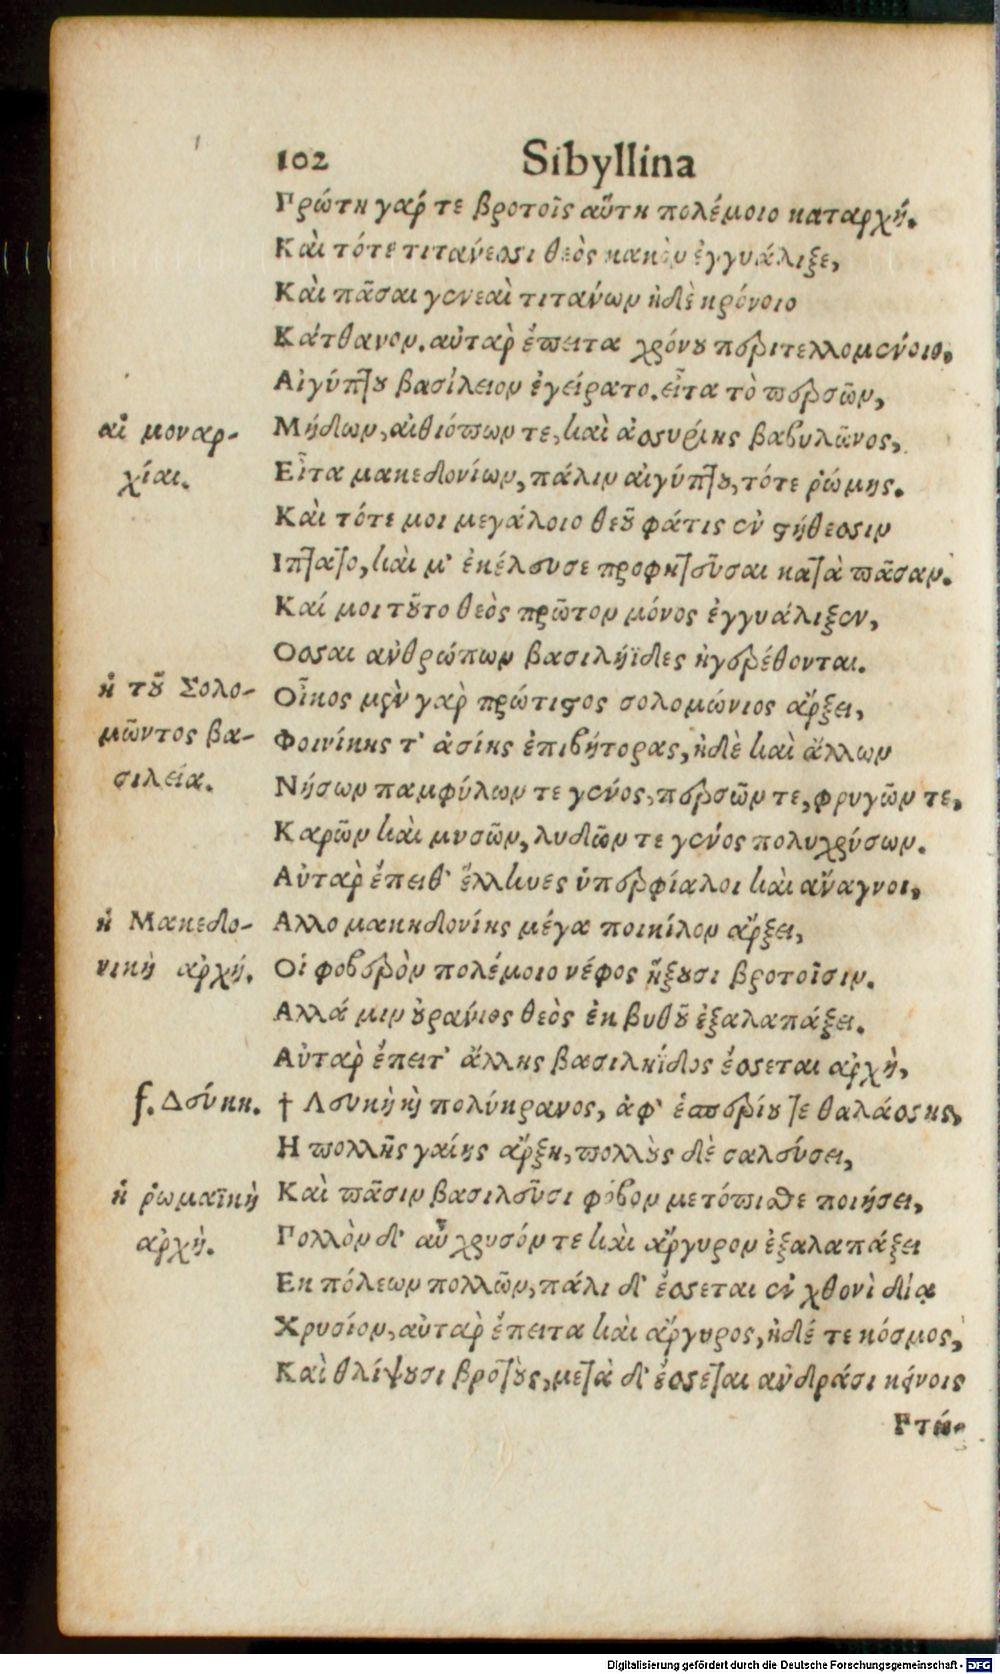 102 Sibyllina
Πρώτη γάρ τε βροτοῖς αὕτη πολέμοιο καταρχή.
Καὶ τότε τιτάνεσσι θεὸς κακὸν ἐγγυάλιξε,
Καὶ πᾶσαι γενεαὶ τιτάνων ἠδὲ κρόνοιο
Κάτθανον. αὐτὰρ ἔπειτα χρόνου περιτελλομένοιο,
Αἰγύπτου βασίλειον ἐγείρατο. εἶτα τὸ περσῶν,
αἱ μοναρ-
Μήδων, αἰθιόπων τε, καὶ ἀσσυρίης βαβυλῶνος,
χίαι.
Εἶτα μακεδονίων, πάλιν αἰγύπτου, τότε ῥώμης.
Καὶ τότε μοι μεγάλοιο θεοῦ φάτις ἐν στήθεσσιν
Ιπτατο, καὶ μ' ἐκέλευσε προφητεῦσαι κατὰ πᾶσαν.
Καί μοι τοῦτο θεὸς πρῶτον μόνος ἐγγυάλιξεν,
Οσσαι ἀνθρώπων βασιλήϊδες ἠγερέθονται.
ἡ τοῦ Σολο-
Οἶκος μὲν γὰρ πρώτιστος σολομώνιος ἄρξει,
μῶντος βα-
Φοινίκης τ' ἀσίης ἐπιβήτορας, ἠδὲ καὶ ἄλλων
σιλεία.
Νήσων παμφύλων τε γένος, περσῶν τε, φρυγῶν τε,
Καρῶν καὶ μυσῶν, λυδῶν τε γένος πολυχρύσων.
Αὐτὰρ ἔπειθ' ἕλληνες ὑπερφίαλοι καὶ ἄναγνοι,
ἡ Μακεδο-
Αλλο μακηδονίης μέγα ποικίλον ἄρξει,
νικὴ ἀρχή.
Οἱ φοβερὸν πολέμοιο νέφος ἥξουσι βροτοῖσιν.
Αλλά μιν οὐράνιος θεὸς ἐκ βυθοῦ ἐξαλαπάξει.
Αὐτὰρ ἔπειτ' ἄλλης βασιληΐδος ἔσσεται ἀρχὴ,
f. Δεύκη.
† Λευκὴ καὶ πολύκρανος, ἀφ' ἑσπερίου τε θαλάσσης,
Η πολλῆς γαίης ἄρξῃ, πολλοὺς δὲ σαλεύσει,
ἡ ῥωμαϊκὴ
Καὶ πᾶσιν βασιλεῦσι φόβον μετόπισθε ποιήσει,
ἀρχὴ.
Πολλὸν δ' αὖ χρυσόν τε καὶ ἄργυρον ἐξαλαπάξει
Εκ πόλεων πολλῶν, πάλι δ' ἔσσεται ἐν χθονὶ δίᾳ
Χρυσίον, αὐτὰρ ἔπειτα καὶ ἄργυρος, ἠδέ τε κόσμος,
Καὶ θλίψουσι βροτοὺς, μετὰ δ' ἔσσεται ἀνδράσι κείνοις
Πτώ-
Digitalisierung gefördert durch die Deutsche Forschungsgemeinschaft - DFG